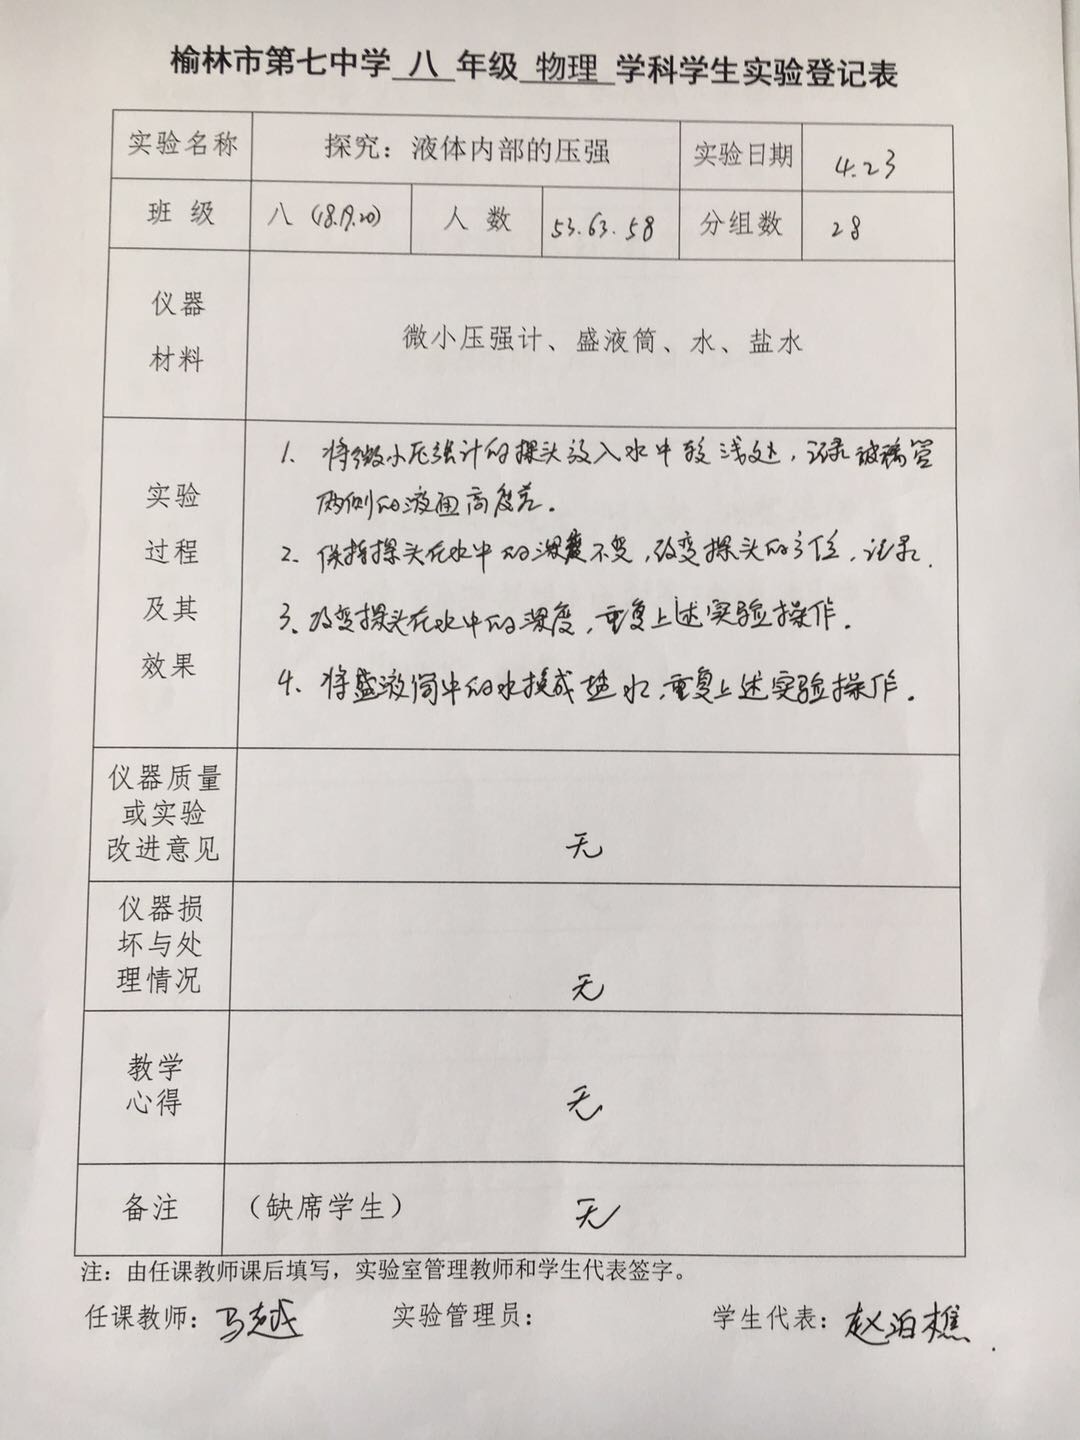 榆林市第七中学 八 年级 物理 学科学生实验登记表
实验名称 探究：液体内部的压强 实验日期 4.23
班 级 八（18.19.20） 人 数 53.63.58 分组数 28
仪器
材料
微小压强计、盛液筒、水、盐水
实验
过程
及其
效果
1、将微小压强计的探头放入水中较浅处，记录玻璃管
两侧的液面高度差。
2、保持探头在水中的深度不变，改变探头的方位，记录.
3、改变探头在水中的深度，重复上述实验操作.
4、将盛液筒中的水换成盐水，重复上述实验操作.
仪器质量
或实验
改进意见
无
仪器损
坏与处
理情况
无
教学
心得
无
备注 （缺席学生） 无
注：由任课教师课后填写，实验室管理教师和学生代表签字。
任课教师：马越 实验管理员： 学生代表：赵泊樵.